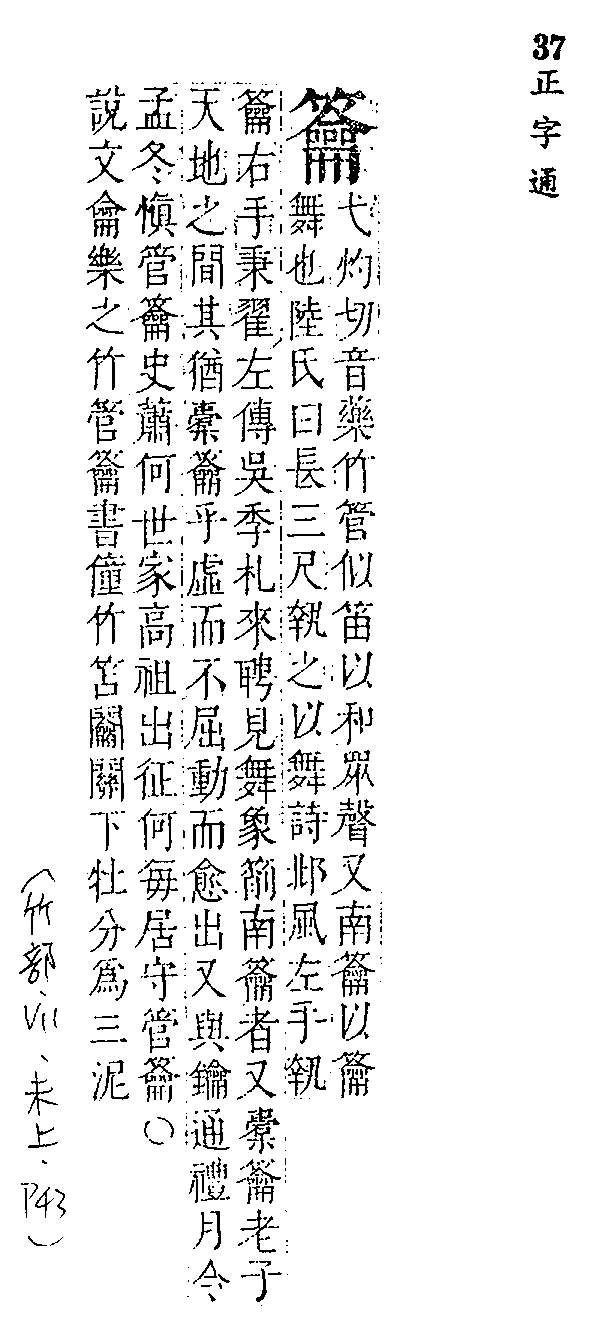 37正字通
籥
弋灼切音藥竹管似笛以和眾聲又南籥以籥
舞也陸氏曰長三尺執之以舞詩邶風左手執
籥右手秉翟左傳吳季札來聘見舞象箾南籥者又橐籥老子
天地之間其猶橐籥乎虛而不屈動而愈出又與鑰通禮月令
孟冬愼管籥史蕭何世家高祖出征何每居守管籥○
說文龠樂之竹管籥書僮竹笘𨷲關下牡分爲三泥
(竹部、VII、未上、P43)